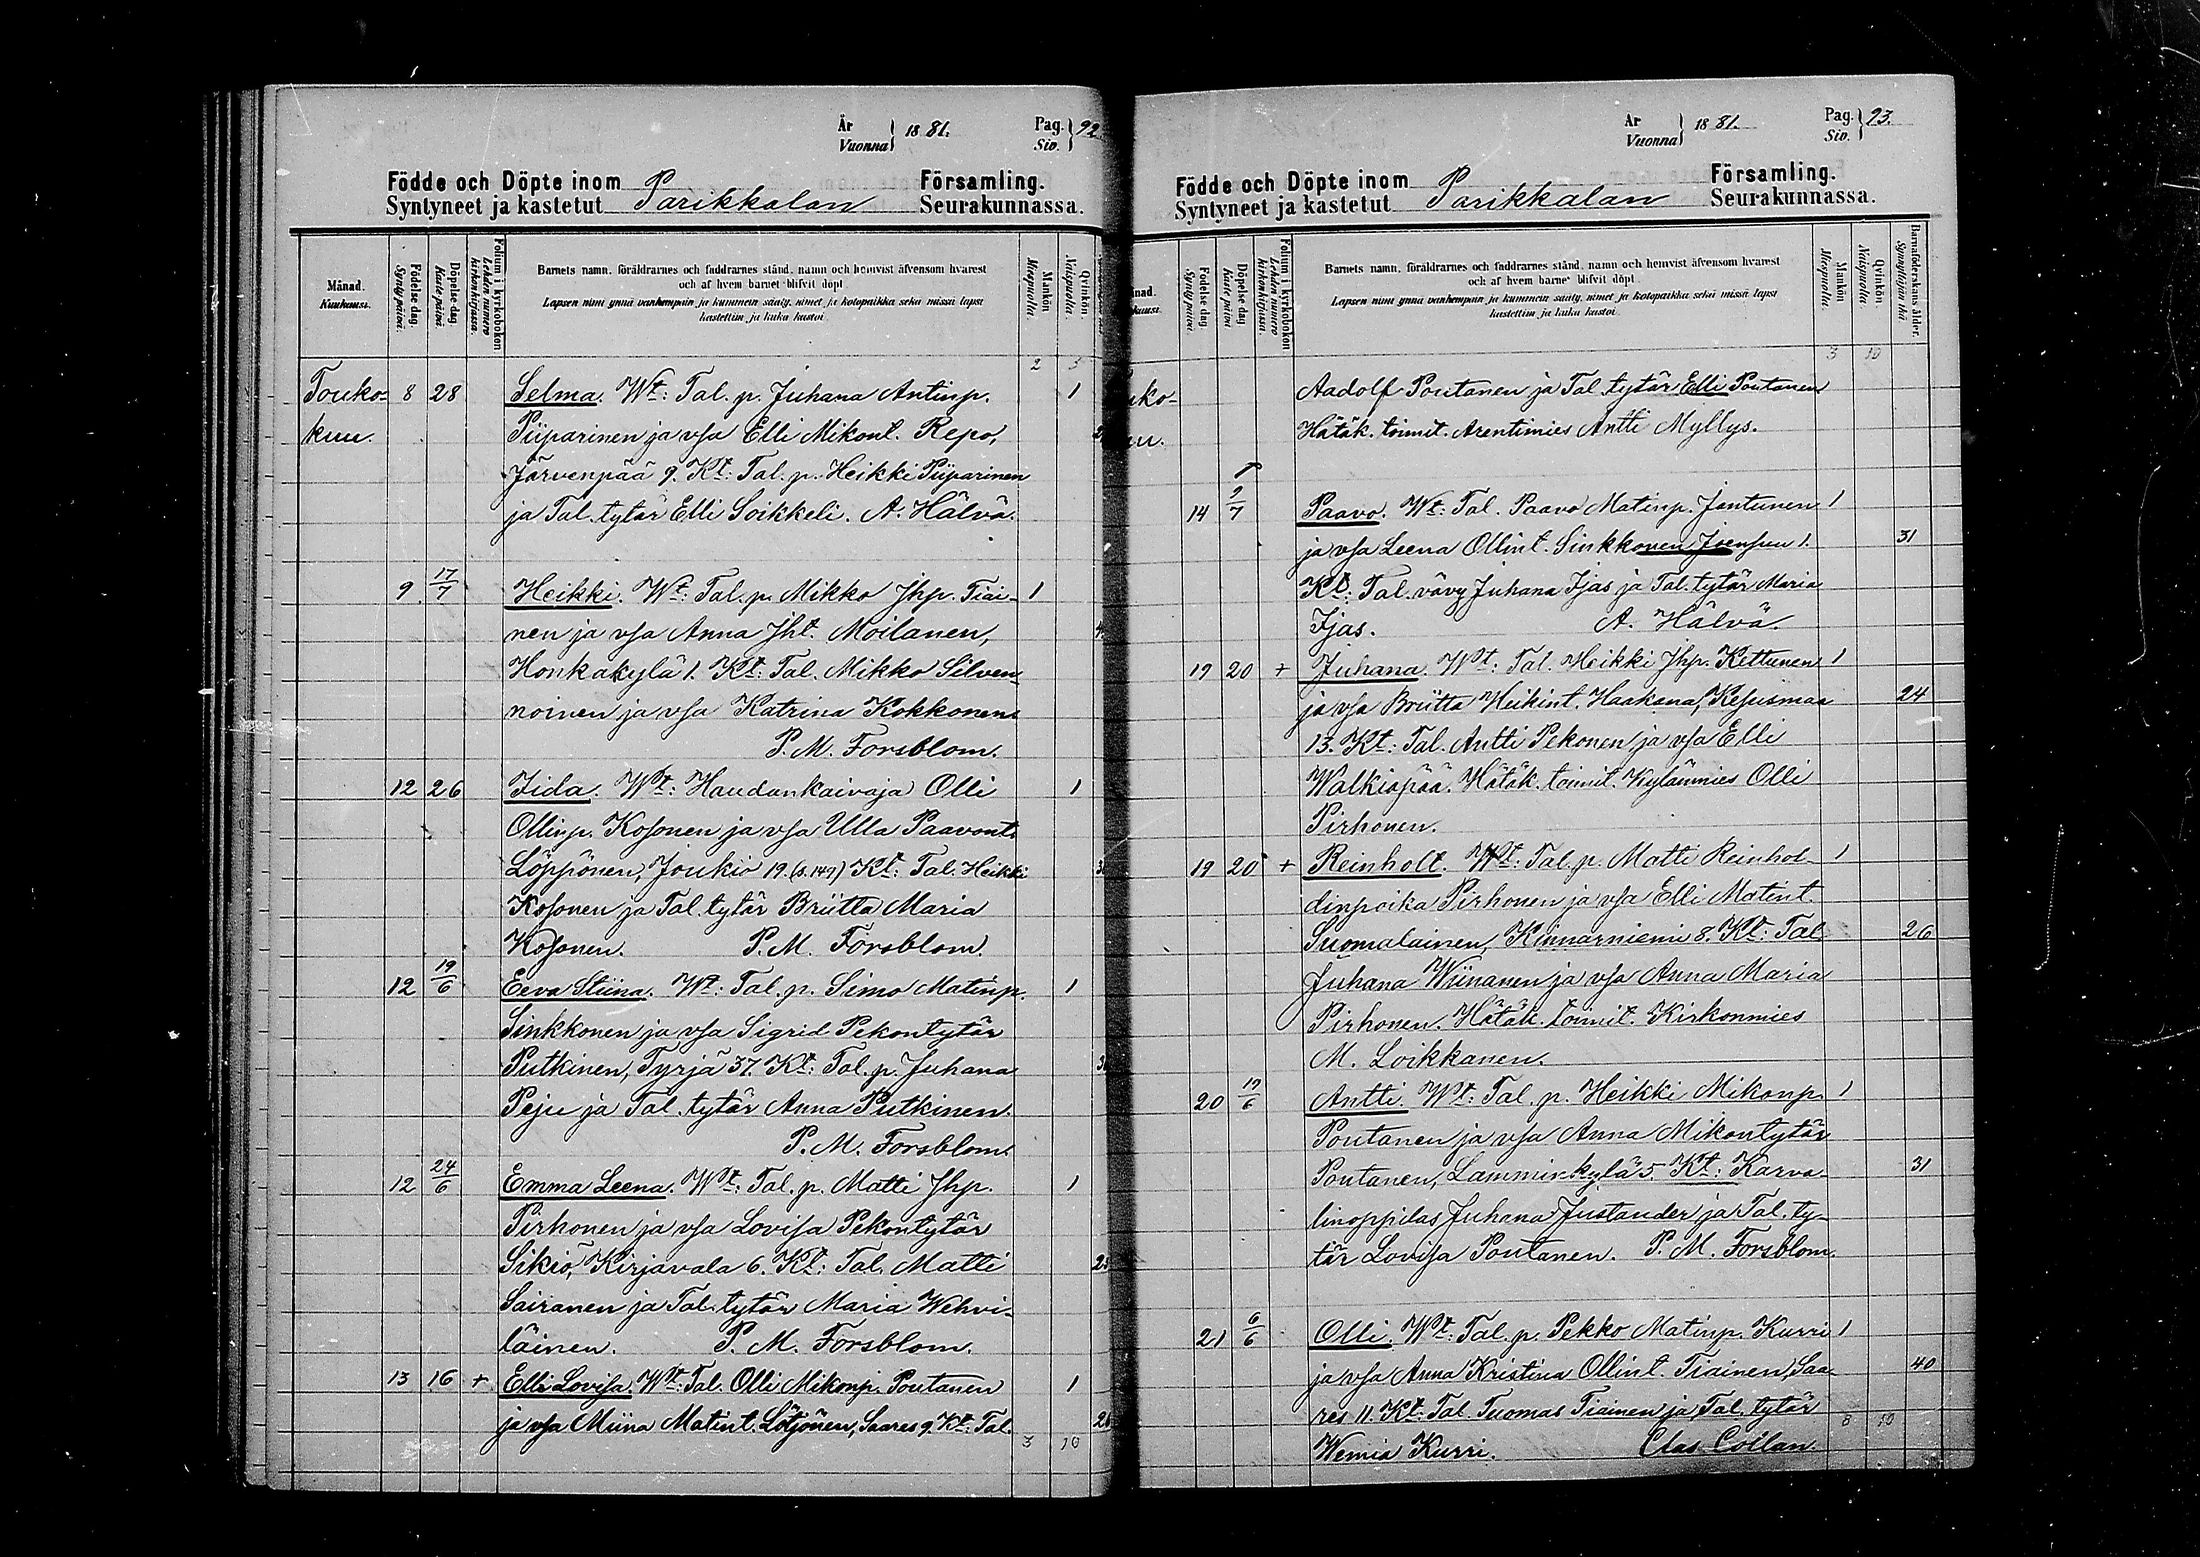 År Vuonna 1881. Pag. Siv. 92
Födde och Döpte inom Församling.
Syntyneet ja kastetut Parikkalan Seurakunnassa.
Månad. Kuukausi.
Födelse dag. Synty päivä.
Döpelse dag. Kaste päivä.
Folium i kyrkoboken Lehden numero kirkonkirjassa.
Barnets namn, föräldrarnes och faddrarnes stånd, namn och hemvist äfvensom hvarest
och af hvem barnet blifvit döpt.
Lapsen nimi ynnä vanhempain ja kummein sääty, nimet ja kotopaikka sekä missä lapsi
kastettiin ja kuka kastoi.
Mankön Miespuolia.
Qvinkön. Naispuolia.
2 3
Touko- 8 28 Selma. Wt: Tal. p. Juhana Antinp. 1
kuu. Piiparinen ja vsa Elli Mikont. Repo,
Järvenpää 9. Kt: Tal. p. Heikki Piiparinen
ja Tal. tytär Elli Soikkeli. A. Hälvä.
9 17/7 Heikki. Wt: Tal. p. Mikko Jhp. Tiai- 1
nen ja vsa Anna Jht. Moilanen,
Honkakylä 1. Kt: Tal. Mikko Silven-
noinen ja vsa Katrina Kokkonen
P. M. Forsblom.
12 26 Iida. Wt: Haudankaivaja Olli 1
Ollinp. Kosonen ja vsa Ulla Paavont.
Löppönen, Joukio 19. (s. 149) Kt: Tal. Heikki
Kosonen ja Tal. tytär Briitta Maria
Kosonen. P. M. Forsblom.
12 19/6 Eeva Stiina. Wt: Tal. p. Simo Matinp. 1
Sinkkonen ja vsa Sigrid Pekontytär
Putkinen, Tyrjä 37. Kt: Tal. p. Juhana
Peju ja Tal. tytär Anna Putkinen.
P. M. Forsblom.
12 24/6 Emma Leena. Wt: Tal. p. Matti Jhp. 1
Pirhonen ja vsa Lovisa Pekontytär
Sikiö, Kirjavala 6. Kt: Tal. Matti
Sairanen ja Tal. tytär Maria Wehvi-
läinen. P. M. Forsblom.
13 16 + Elli Lovisa. Wt: Tal. Olli Mikonp. Poutanen 1
ja vsa Miina Matint. Lötjönen, Saares 9. Kt: Tal.
3 10
År Vuonna 1881. Pag. Siv. 93.
Födde och Döpte inom Församling.
Syntyneet ja kastetut Parikkalan Seurakunnassa.
Födelse dag. Synty päivä.
Döpelse dag Kaste päivä
Folium i kyrkoboken Lehden numero kirkonkirjassa.
Barnets namn, föräldrarnes och faddrarnes stånd, namn och hemvist äfvensom hvarest
och af hvem barnet blifvit döpt.
Lapsen nimi ynnä vanhempain ja kummein sääty, nimet ja kotopaikka sekä missä lapsi
kastettiin ja kuka kastoi.
Mankön Miespuolia.
Qvinkön Naispuolia.
Barnaföderskans ålder. Synnyttäjän ikä
3 10
Aadolf Poutanen ja Tal. tytär Elli Poutanen
Hätäk. toimit. Arentimies Antti Myllys.
14 9/7 Paavo. Wt: Tal. Paavo Matinp. Jantunen 1
ja vsa Leena Ollint. Sinkkonen Joensuu 1. 31
Kt: Tal. vävy Juhana Ijas ja Tal. tytär Maria
Ijas. A. Hälvä.
19 20 + Juhana. Wt: Tal. Heikki Jhp. Kettunen 1
ja vsa Briitta Heikint. Haakana, Kesusmaa 24
13. Kt: Tal. Antti Pekonen ja vsa Elli
Walkiapää. Hätäk. toimit. Kylänmies Olli
Pirhonen.
19 20 + Reinholt. Wt: Tal. p. Matti Reinhol- 1
dinpoika Pirhonen ja vsa Elli Matint.
Suomalainen, Kinnarniemi 8. Kt: Tal. 26
Juhana Wiinanen ja vsa Anna Maria
Pirhonen. Hätäk. toimit. Kirkonmies
M. Loikkanen.
20 19/6 Antti. Wt: Tal. p. Heikki Mikonp. 1
Poutanen ja vsa Anna Mikontytär
Poutanen, Lamminkylä 5. Kt: Karva- 31
linoppilas Juhana Justander ja Tal. ty-
tär Lovisa Poutanen. P. M. Forsblom.
21 6/6 Olli. Wt: Tal. p. Pekko Matinp. Kurri 1
ja vsa Anna Kristina Ollint. Tiainen, Saa- 40
res 11. Kt: Tal. Tuomas Tiainen ja Tal. tytär
8 10
Wemia Kurri. Clas Collan.